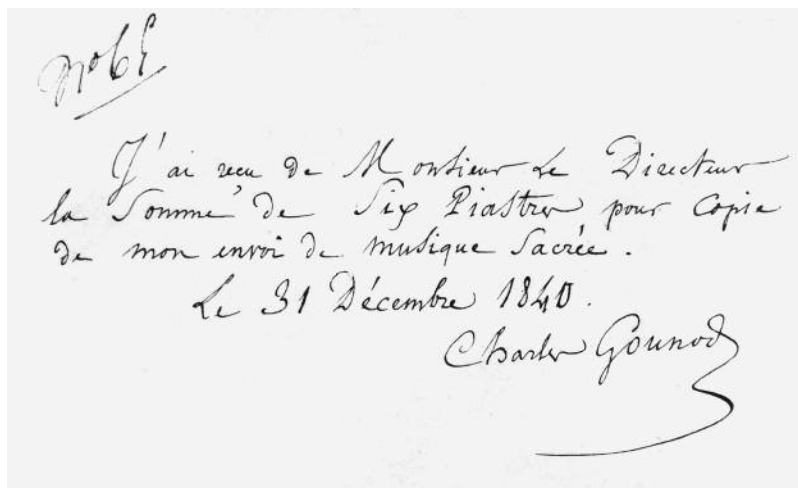 J'ai reçu de Monsieur Le Directeur
la Somme de Six Piastres pour Copie
de mon envoi de musique Sacrée.
Le 31 Décembre 1840.
Charles Gounod